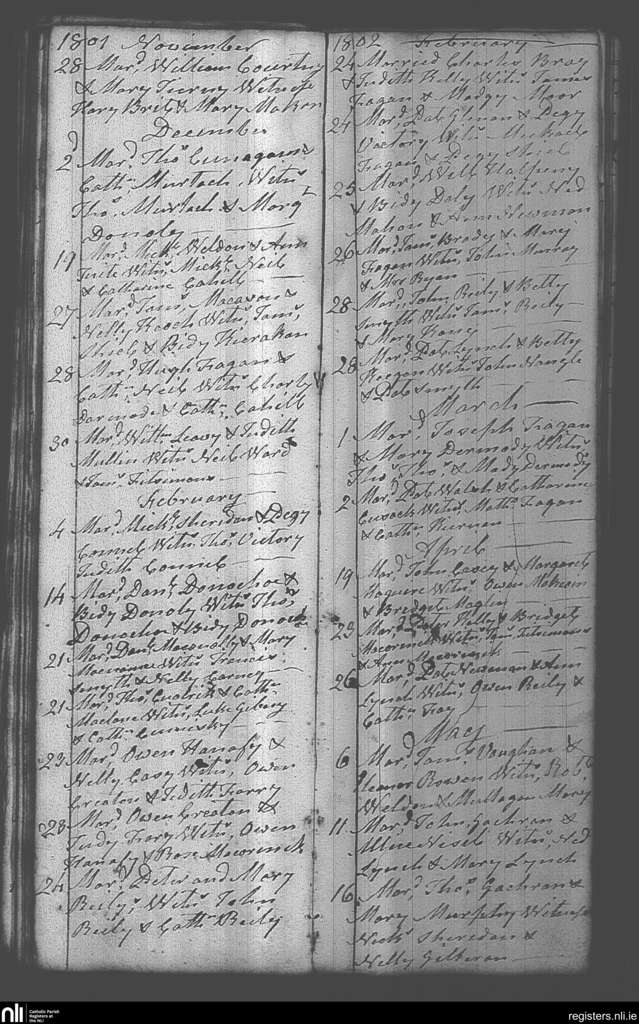 1801 November
28 Mard. William Courtny
& Mary Witness
Hary & Mary Makon
December
2 Mard. Thos.
Cathn. Murtach Witns.
Thos. Murtach & Margt.
Donoly
19 Mard. Michl. Weldon & Ann
Tuite Witns. Michl. Neil
& Catharine Cahill
27 Mard. Jams.
Nelly Roach Witns. Jams.
Shiel & Bidy Kierakan
28 Mard. Hugh Fagan &
Cathn. Neil Witns. Charls
Darmody & Cathn. Cahill
30 Mard. Willm. Leavy & Judith
Mullin Witns. Neil Ward
& Fitsimons
February
4 Mard. Michl. Sheridan & Pegy
Connel Witns. Thos. Victory
Judith Connel
14 Mard. Danl. Donochoe &
Bidy Donoly Witns. Thos.
Donochoe & Bidy
21 Mard. Danl. & Mary
Witns. Francis
Smyth & Nelly
21 Mard. Thos. & Cathn.
Witns. Luke
& Cathn.
23 Mard. Owen Hanafy &
Nelly Casy Witns. Owen
Greaton & Judith Farry
23 Mard. Owen Greaton &
Judy Farry Witns. Owen
Hanafy & Rose Macormick
24 Mard. Peter and Mary
Reily Witns. John
Reily & Cathn. Reily
1802 February
24 Married Charls Bray
& Judith Kelly Witns. James
Fagan & Madgy Moor
24 Mard. Patk. & Pegy
Victory Witns. Michael
Fagan & Pegy Shiel
25 Mard. Will Halpeny
& Bidy Daly Witns. Ned
Mahon & Ann Newman
26 Mard. Jams. Brady & Mary
Fagan Witns. John Murray
& Ryan
28 Mard. John Reily & Betty
Smyth Witns. Jams. Reily
& Mary
28 Mard. Patk. Lynch & Betty
Keegan Witns. John Nangle
& Patk. Smyth
March
1 Mard. Joseph Fagan
& Mary Dermody Witns.
Thos. & Mary Dermody
2 Mard. Patk. Walsh & Catharine
Cusack Witns. Mathw. Fagan
& Cathn. Kiernan
April
19 Mard. John Casey & Margaret
Maguire Witns. Owen
& Bridget
25 Mard. Peter Kelly & Bridget
Macormick Witns. Jams. Fitsimons
& Ann
26 Mard. Patk. Newman & Ann
Lynch Witns. Owen Reily &
Cathn. Fay
May
6 Mard. Jams. Vaughan &
Eleanor Bowen Witns. Robt.
Weldon & Mullagan Mary
11 Mard. John Gachran &
Witns. Ned
Lynch & Mary Lynch
16 Mard. Thos. Gachran &
Mary Murphy Witness
Nichs. Sheridan &
Nelly Gilteran
nli
Catholic Parish
Registers at
the NLI
registers.nli.ie